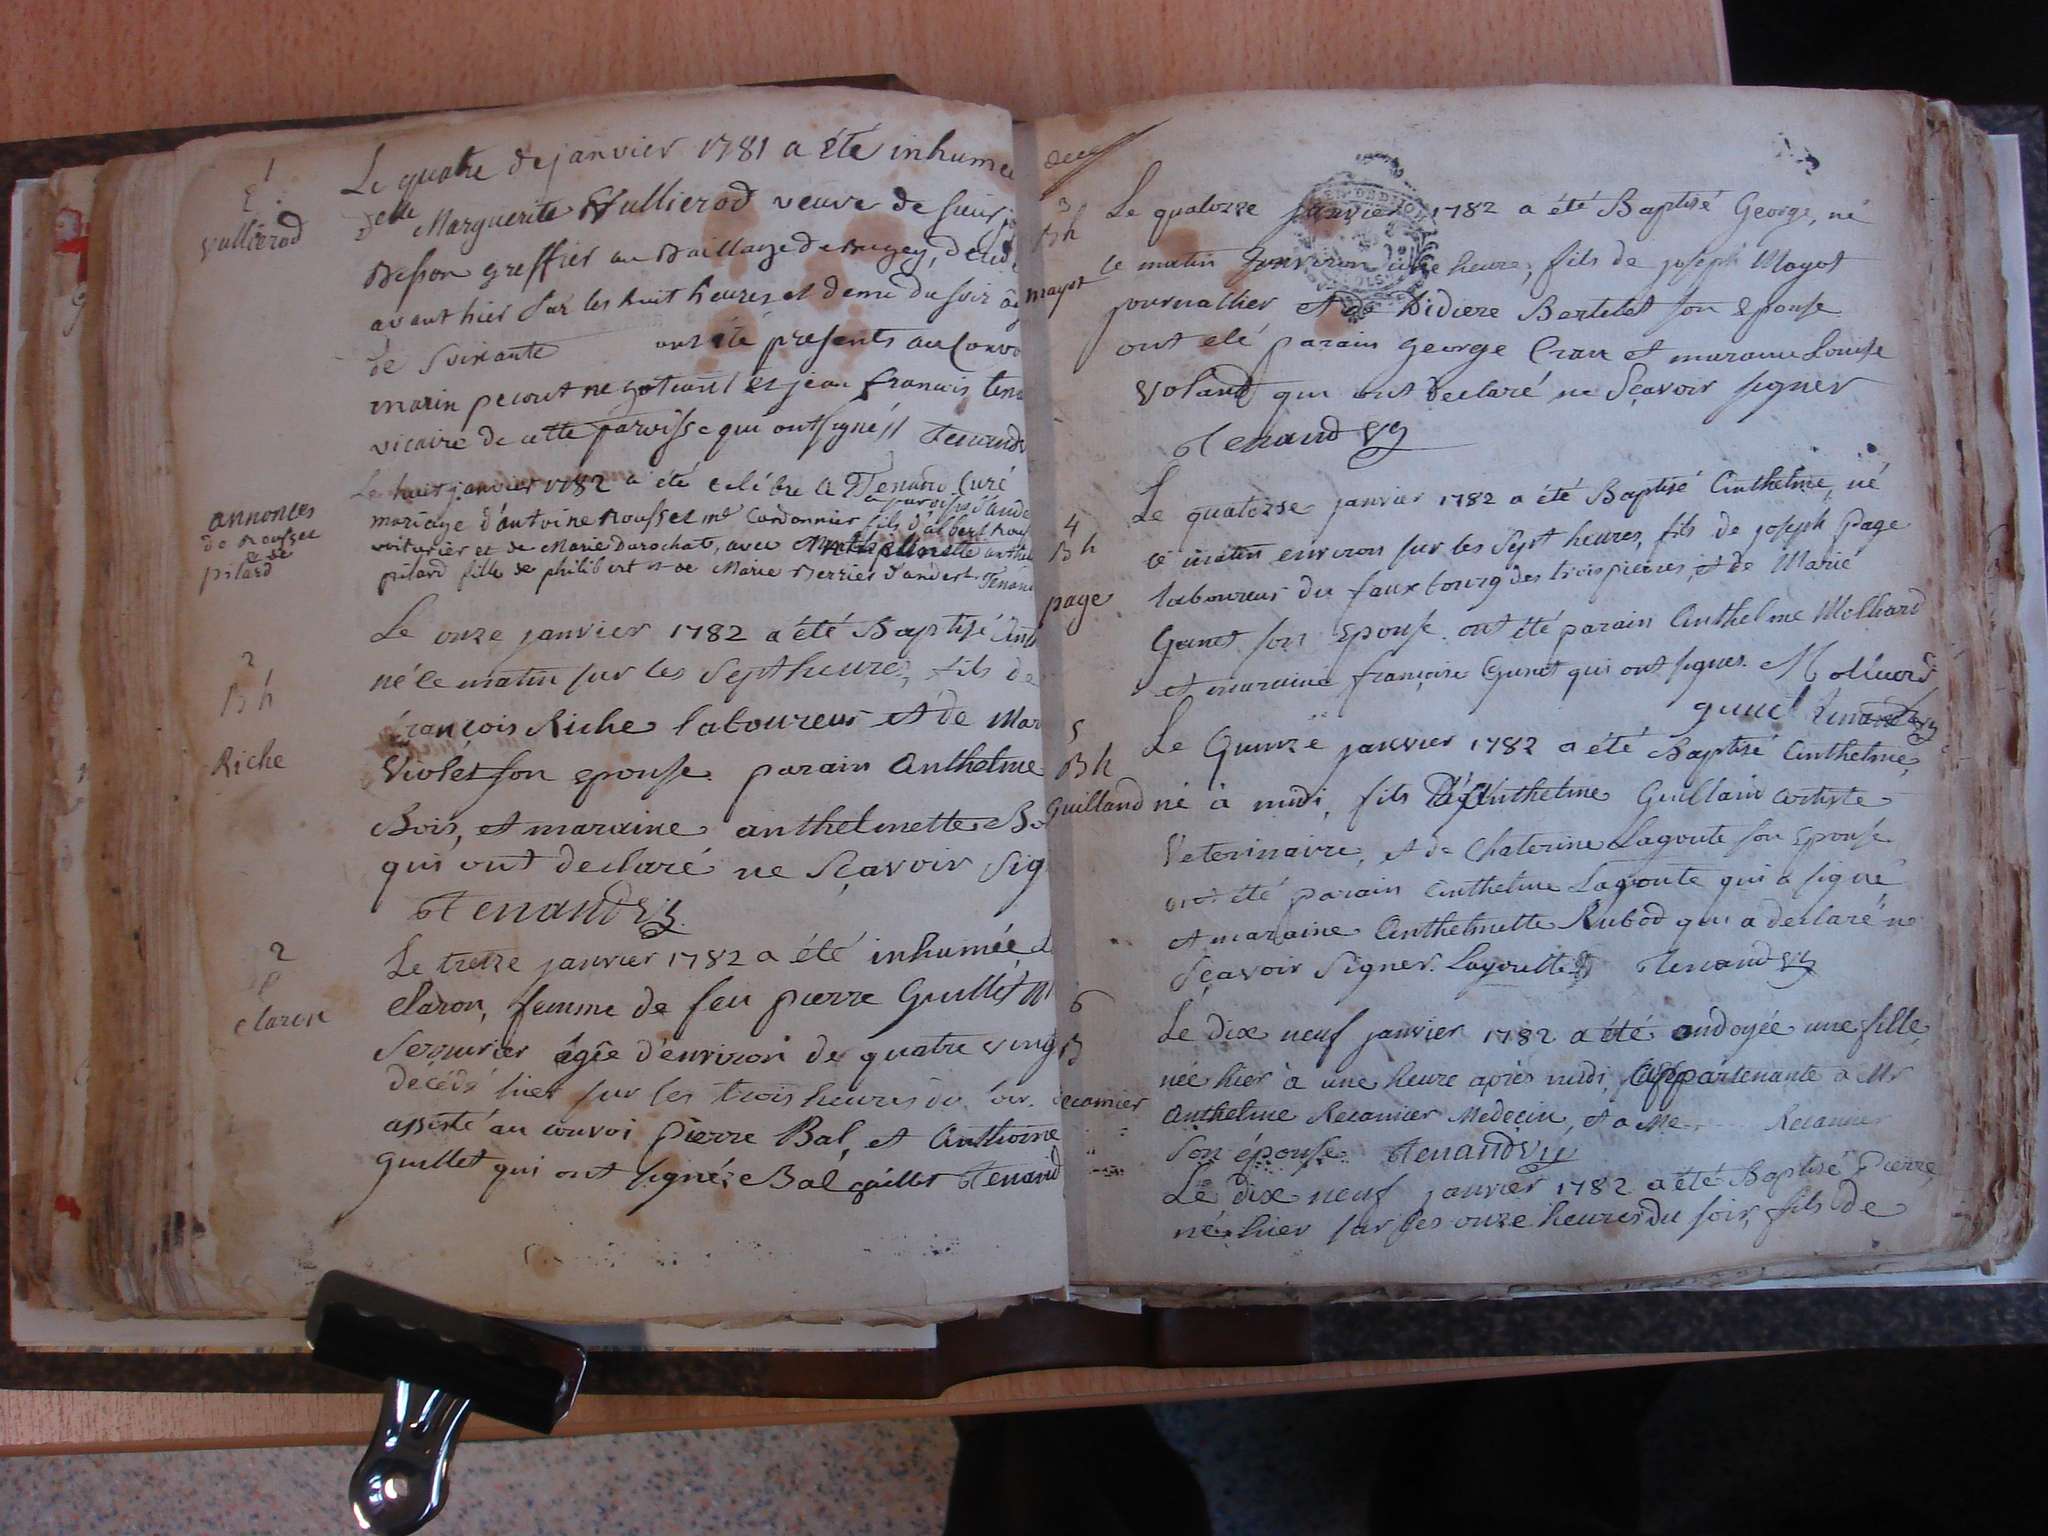 1
Vullierod
Le quatre de janvier 1781 a été inhumée
delle Marguerite Vullierod veuve de sieur
Besson greffier au Baillage de Bugey, décédé
avant hier sur les huit heures et demi du soir âg
de soixante ont été presents au Convo
marin pecout negotiant et jean francois tena
vicaire de cette parroisse qui ont signés // Tenand v
annonces
de rousset
et de
pilard
Le huit janvier 1782 a été celébre le Tenand Curé
mariage d'antoine rousset md Cordonnier fils d'albert Rous
voiturier et de Marie Durochat, avec
pilard fille de philibert et de Marie Berrier d'andert Tenand
2
Bh
Riche
Le onze janvier 1782 a été Baptisé Anth
né ce matin sur les sept heures, fils de
françois Riche laboureur et de Mar
Violet son epouse parain Anthelme
Bois, et maraine anthelmette Bo
qui ont declaré ne sçavoir sig
Tenand vg
2
claron
Le treize janvier 1782 a été inhumée d
claron, femme de feu pierre Guillet M
serrurier âgée d'environ de quatre vingt
décédé hier sur les trois heures du soir.
assisté au convoi pierre Bal, et Anthoine
Guillet qui ont signés Bal guillet Tenand
3
Bh
mayot
Le quatorze janvier 1782 a été Baptisé George, né
ce matin environ une heure, fils de joseph Mayot
journallier et de Didiere Bertelet son epouse
ont été parain george Cran et maraine Louise
Voland qui ont declaré ne sçavoir signer
Tenand vg
4
Bh
page
Le quatorze janvier 1782 a été Baptisé Anthelme, né
ce matin environ sur les sept heures, fils de joseph page
laboureur du fauxbourg des trois pierres, et de Marie
Gunet son epouse ont été parain Anthelme Molliard
et maraine françoise Gunet qui ont signes. Molliard
gunet Tenand vg
5
Bh
Guilland
Le Quinze janvier 1782 a été Baptisé Anthelme,
né à midi, fils d'Anthelme Guilland artiste
veterinaire, et de Chaterine Lagoute son epouse
ont été parain Anthelme Lagoute qui a signé
et maraine Anthelmette Rubod qui a declaré ne
sçavoir signer. Lagoutte Tenand vg
6
B
recamier
Le dix neuf janvier 1782 a été ondoyée une fille
née hier à une heure après midi, appartenante a Mr
Anthelme Recamier Medecin, et a Me Recamier
son épouse Tenand vg
Le dix neuf janvier 1782 a été Baptisé Pierre,
né hier sur les onze heures du soir, fils de